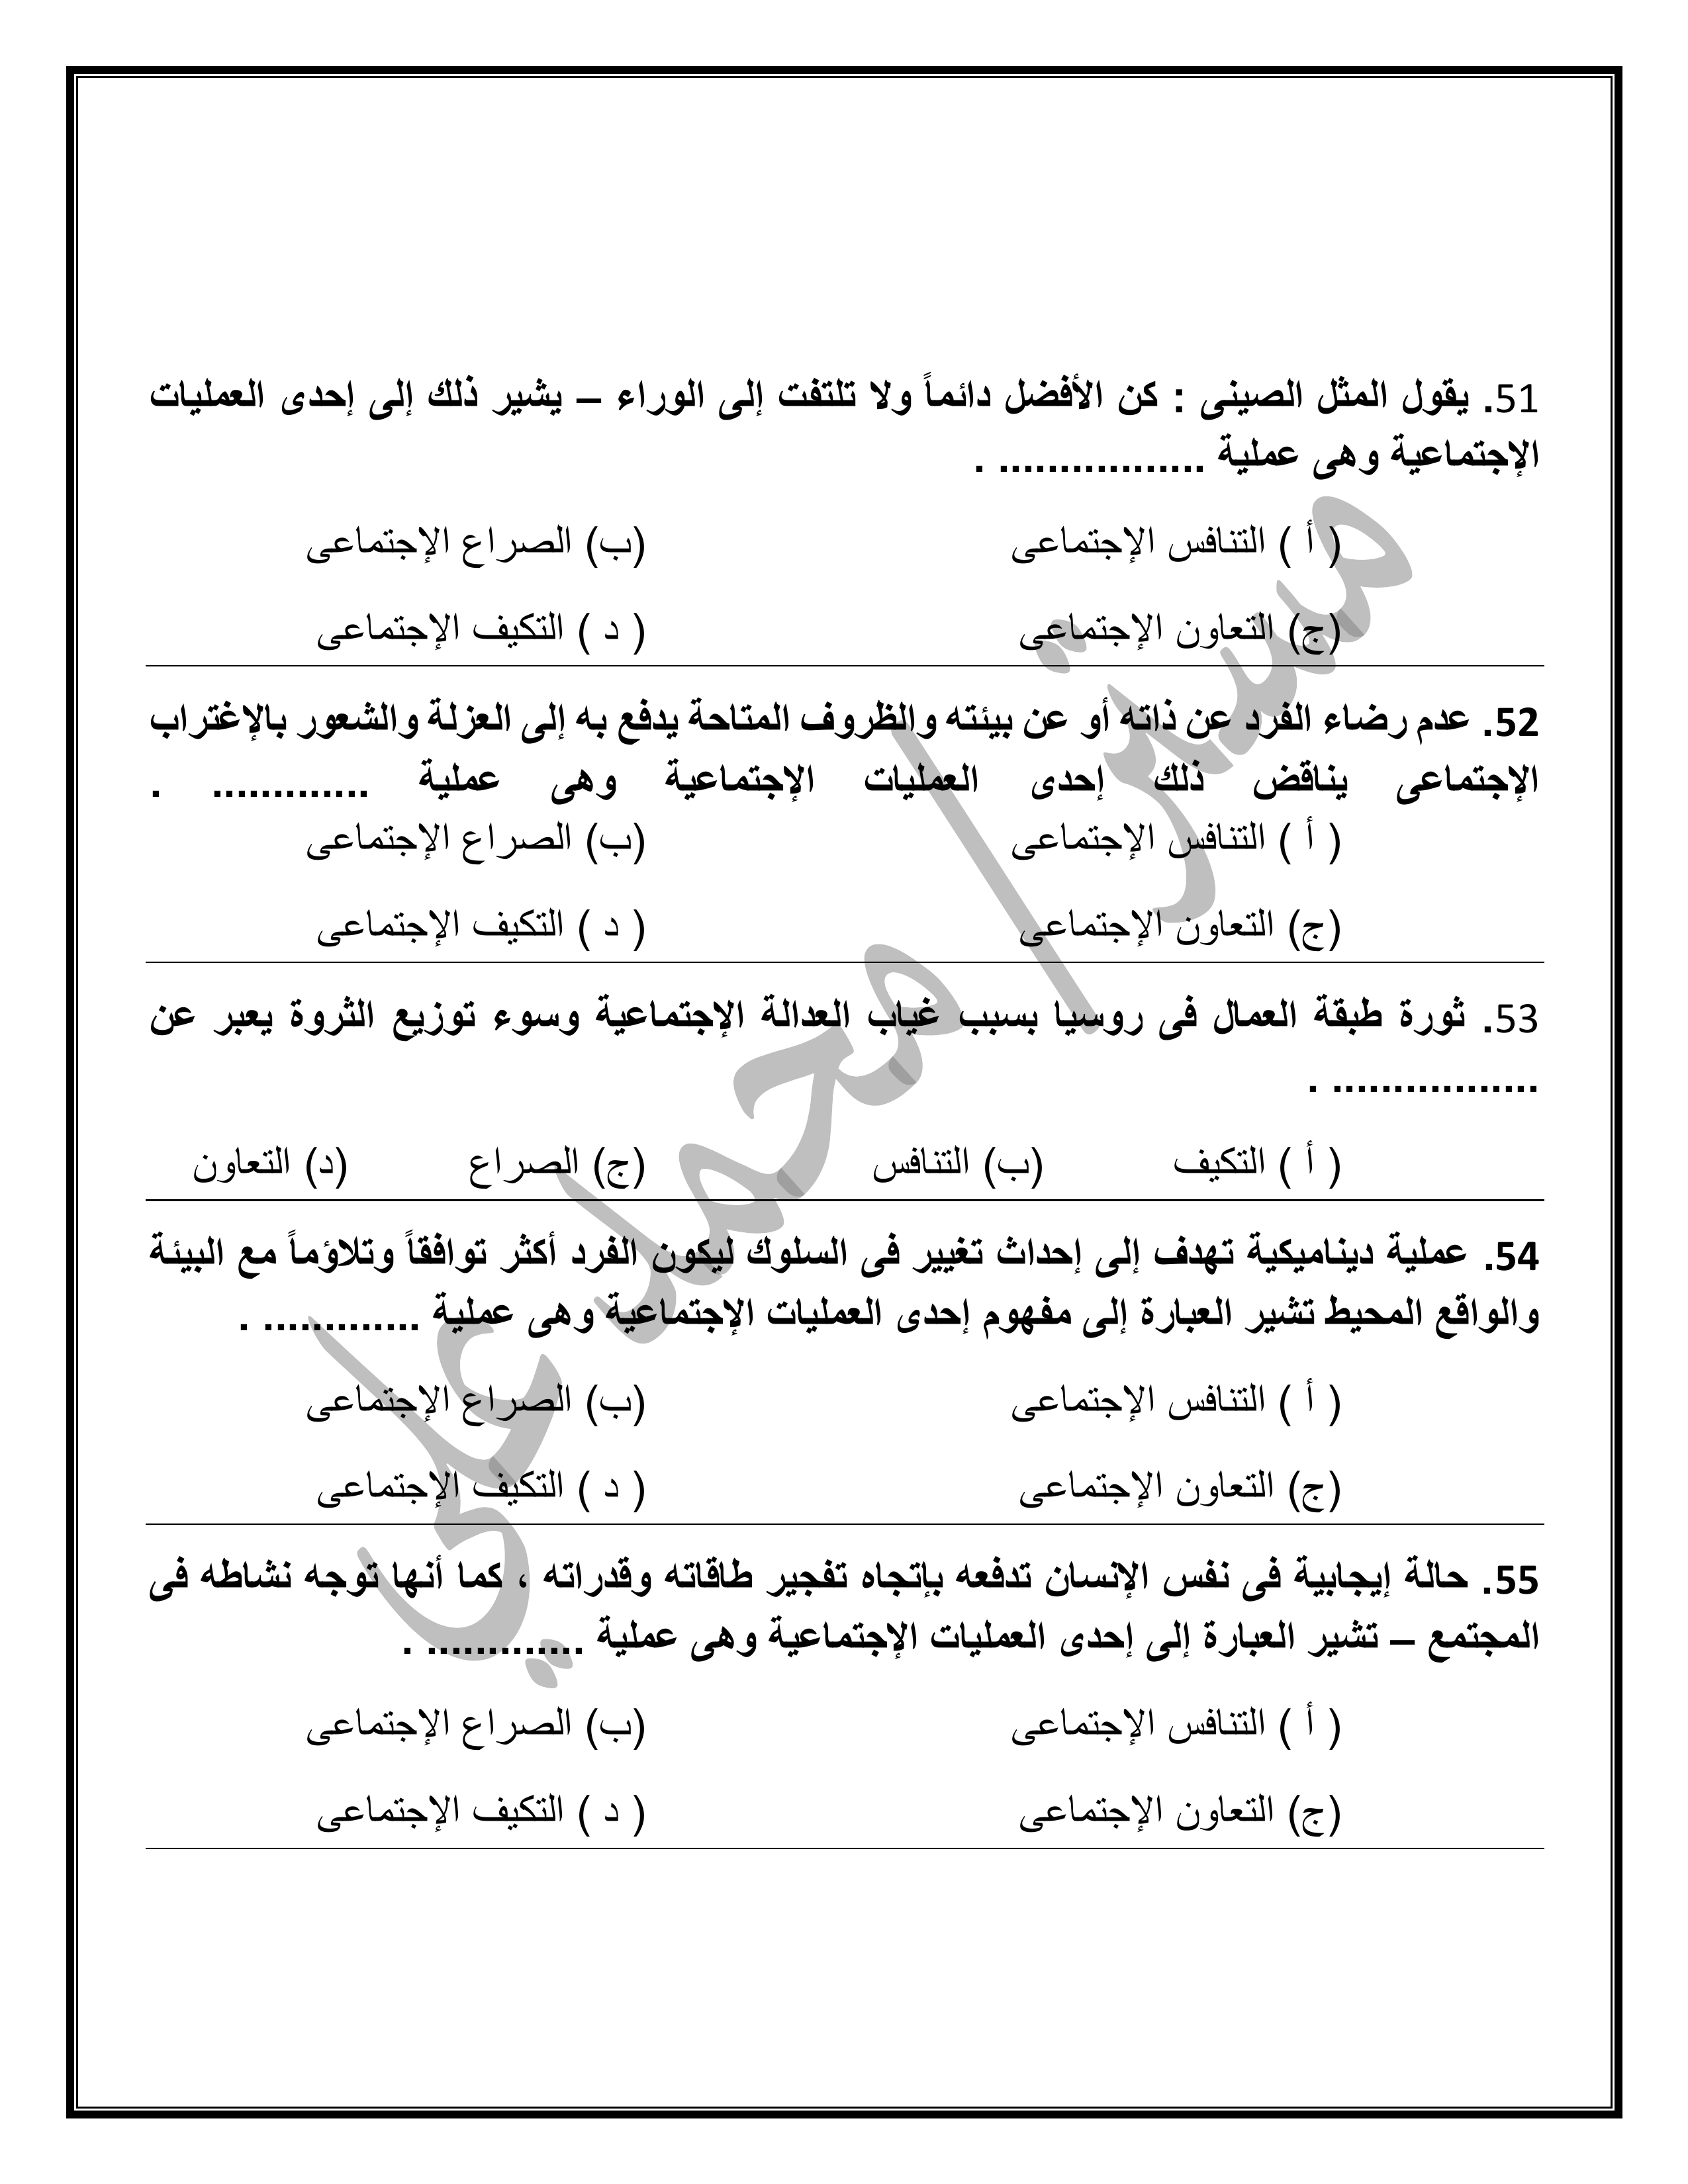 51. يقول المثل الصينى : كن الأفضل دائماً ولا تلتفت إلى الوراء – يشير ذلك إلى إحدى العمليات
الإجتماعية وهى عملية ................. .
( أ ) التنافس الإجتماعى (ب) الصراع الإجتماعى
(ج) التعاون الإجتماعى ( د ) التكيف الإجتماعى
52. عدم رضاء الفرد عن ذاته أو عن بيئته والظروف المتاحة يدفع به إلى العزلة والشعور بالإغتراب
الإجتماعى يناقض ذلك إحدى العمليات الإجتماعية وهى عملية ............. .
( أ ) التنافس الإجتماعى (ب) الصراع الإجتماعى
(ج) التعاون الإجتماعى ( د ) التكيف الإجتماعى
53. ثورة طبقة العمال فى روسيا بسبب غياب العدالة الإجتماعية وسوء توزيع الثروة يعبر عن
................. .
( أ ) التكيف (ب) التنافس (ج) الصراع (د) التعاون
54. عملية ديناميكية تهدف إلى إحداث تغيير فى السلوك ليكون الفرد أكثر توافقاً وتلاؤماً مع البيئة
والواقع المحيط تشير العبارة إلى مفهوم إحدى العمليات الإجتماعية وهى عملية ............. .
( أ ) التنافس الإجتماعى (ب) الصراع الإجتماعى
(ج) التعاون الإجتماعى ( د ) التكيف الإجتماعى
55. حالة إيجابية فى نفس الإنسان تدفعه بإتجاه تفجير طاقاته وقدراته ، كما أنها توجه نشاطه فى
المجتمع – تشير العبارة إلى إحدى العمليات الإجتماعية وهى عملية ............. .
( أ ) التنافس الإجتماعى (ب) الصراع الإجتماعى
(ج) التعاون الإجتماعى ( د ) التكيف الإجتماعى
مستر / محمد علي